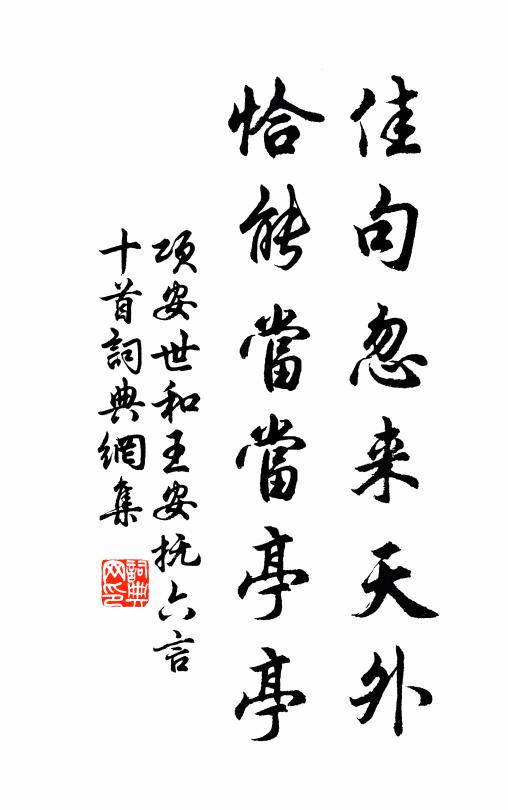 佳句忽来天外
恰能當當亭亭
項安世和王安抚六言
十首詞典網集
詞典网印